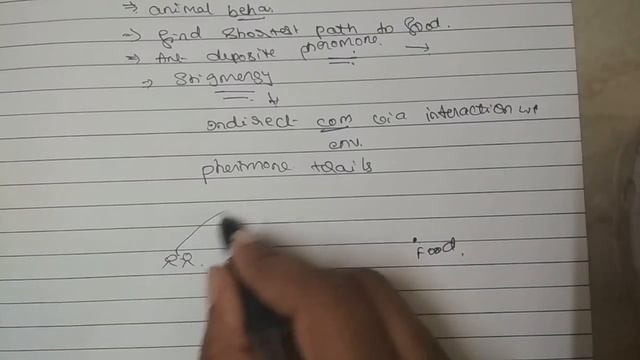 ⇒ animal beha.
→ find shortest path to food.
→ Ant deposite pheromone. →
→ Stigmergy
↓
indirect com via interaction we
env.
pherimone trails
Food.